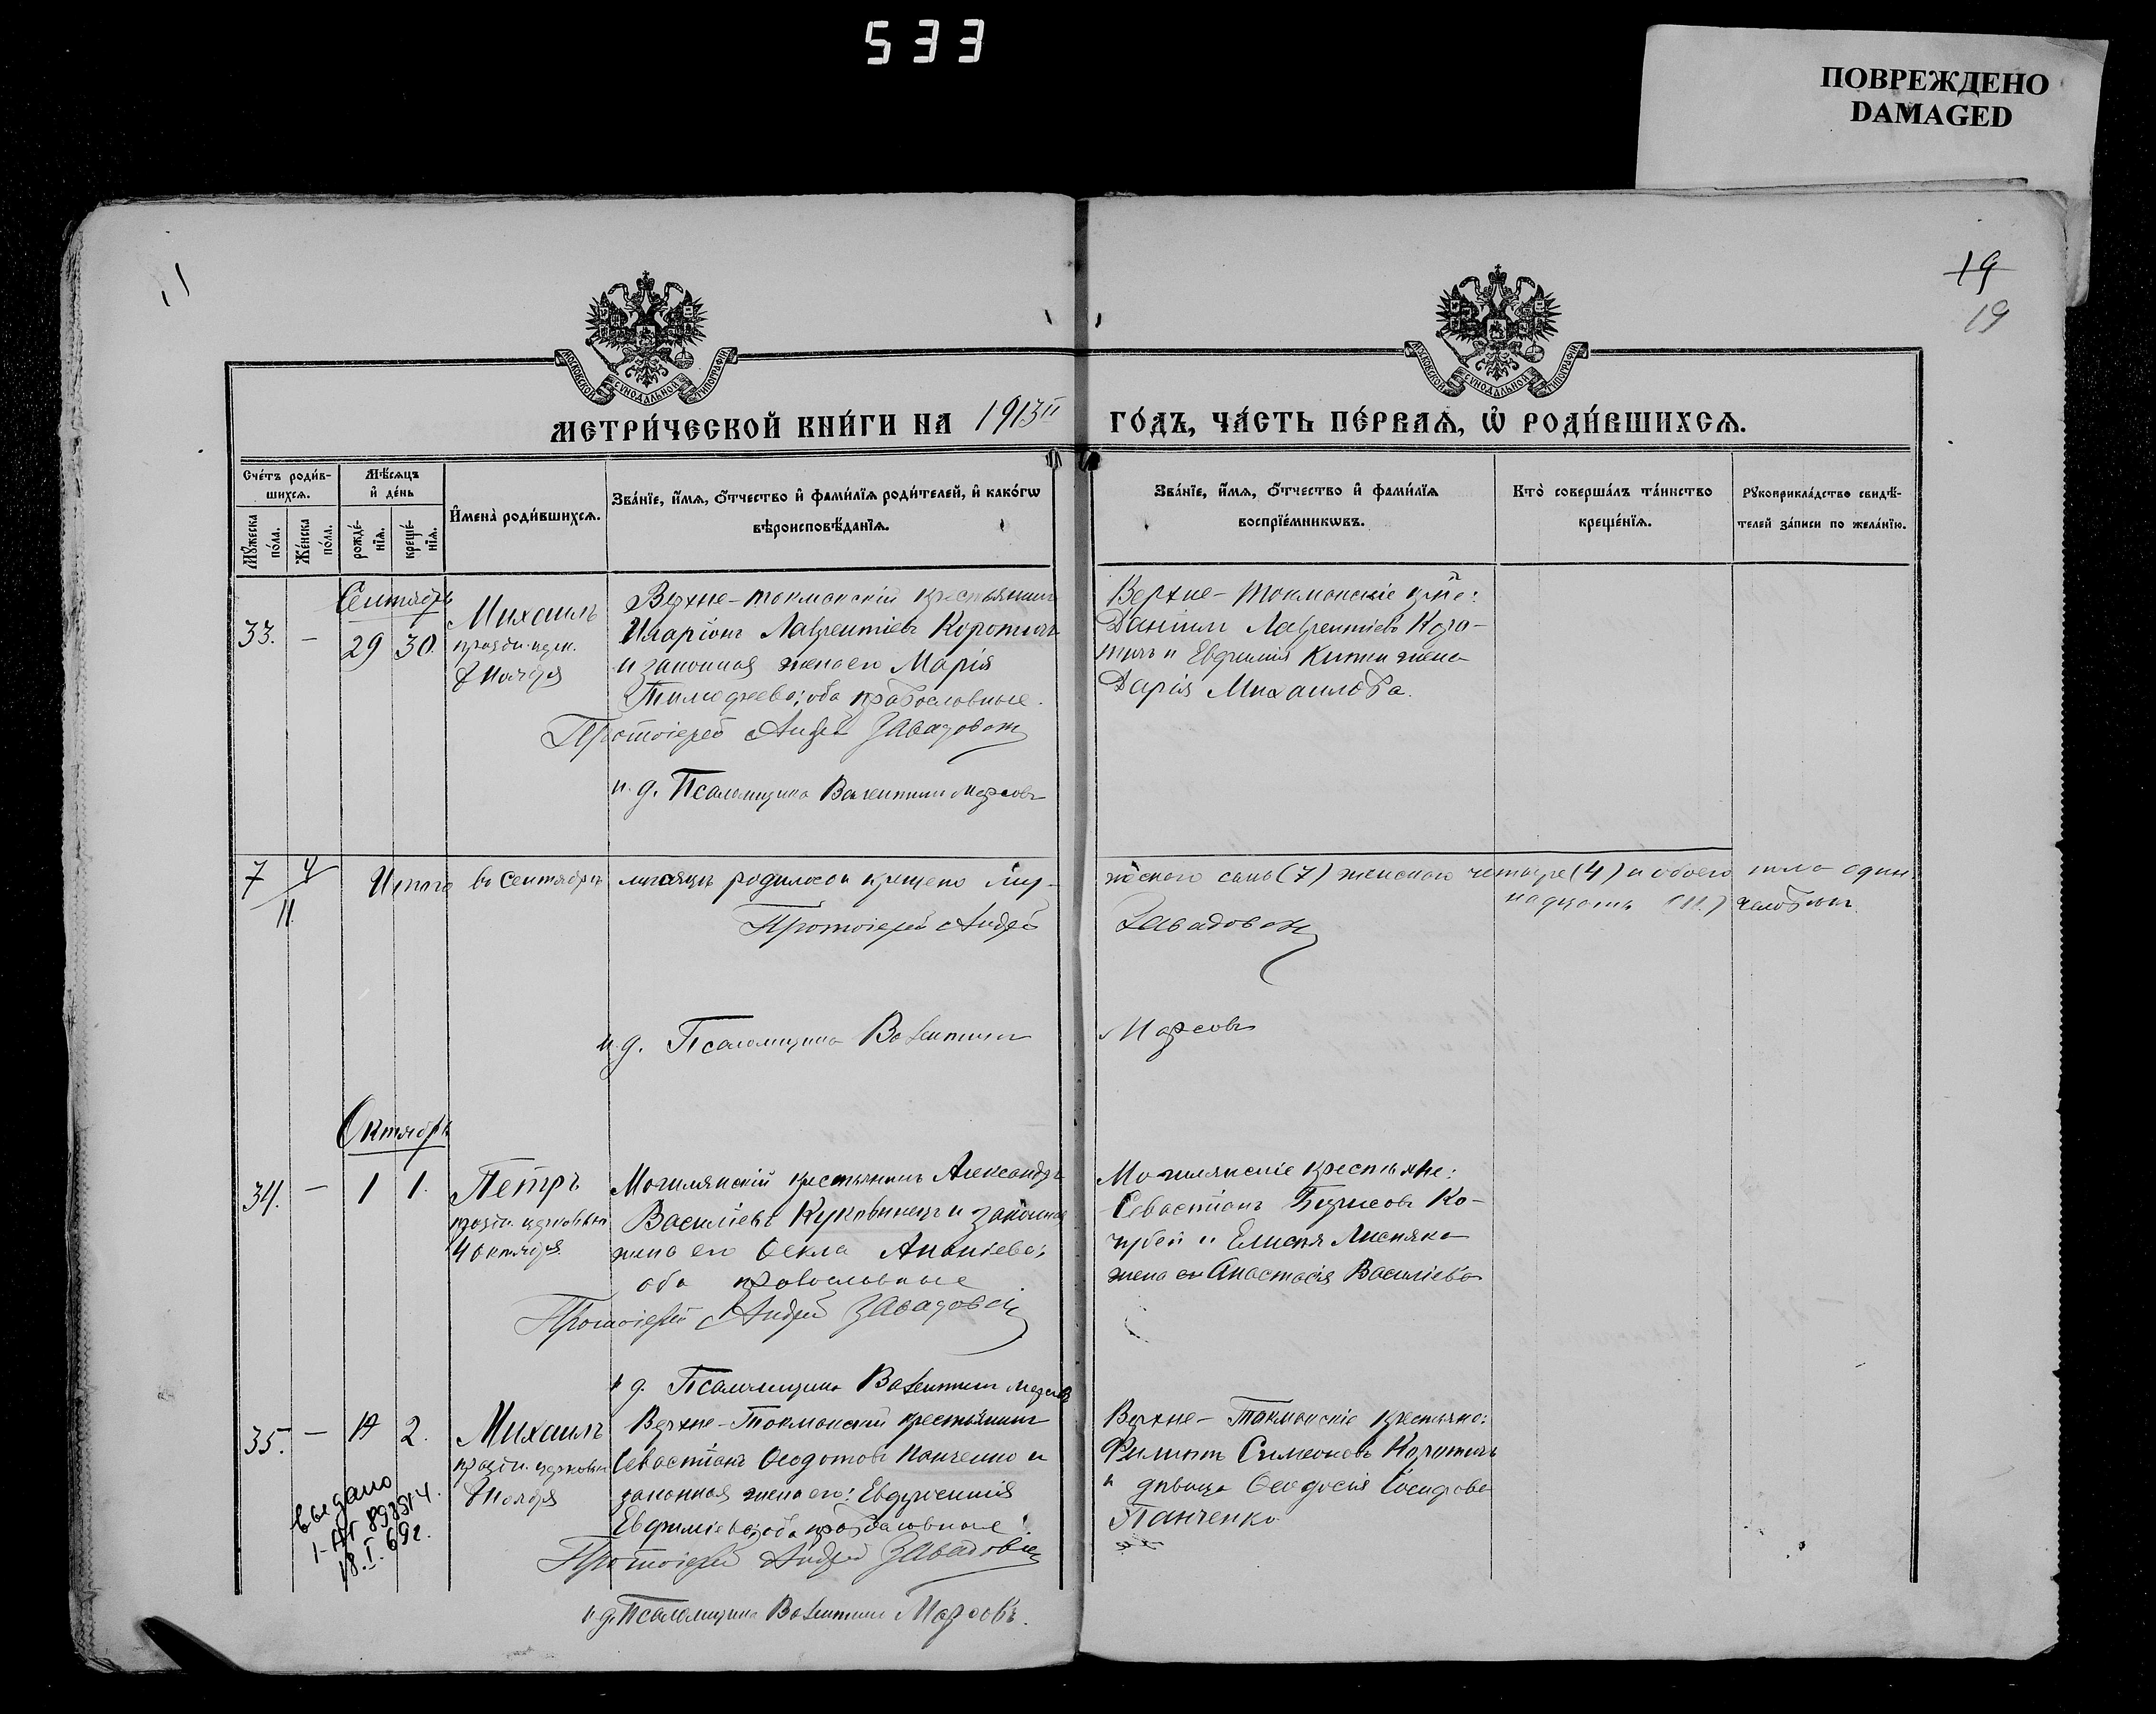 533
ПОВРЕЖДЕНО
DAMAGED
19
19
МОСКОВСКОЙ СѴНОДАЛЬНОЙ ТИПОГРАФІИ
МОСКОВСКОЙ СѴНОДАЛЬНОЙ ТИПОГРАФІИ
МЕТРИ́ЧЕСКОЙ КНИ́ГИ НА 1913й ГО́ДЪ, ЧА́СТЬ ПЕ́РВАѦ, Ѽ РОДИ́ВШИХСѦ.
Сче́тъ роди́в-
шихсѧ.
Мꙋ́жеска по́ла.
Же́нска по́ла.
Мѣ́сѧцъ
и҆ де́нь
рожде́-
нїѧ.
креще́-
нїѧ.
И҆мена̀ роди́вшихсѧ.
Зва́нїе, и҆́мѧ, ѻ҆́тчество и҆ фами́лїѧ роди́телей, и҆ како́гѡ
вѣроисповѣ́данїѧ.
Зва́нїе, и҆́мѧ, ѻ҆́тчество и҆ фами́лїѧ
воспрїе́мникѡвъ.
Кто̀ соверша́лъ та́инство
креще́нїѧ.
Рꙋкоприкла́дство свидѣ́-
телей за́писи по жела́нїю.
Сентябрь
33. — 29 30.
Михаилъ
8 Ноября
Верхне-Токмакскій крестьянинъ
Иларіонъ Лаврентіевъ Коротичъ
и законная жена его Марія
Тимофеева; оба православные.
Протоіерей Андрей Завадовск
и. д. Псаломщика Валентинъ Марсовъ
Верхне-Токмакскіе
Даніилъ Лаврентіевъ Коро-
тичъ и Евфимія жена
Дарія Михаилова.
7 4
11.
Итого въ Сентябрѣ мѣсяцѣ родилось и крещено муж-
ского семь (7) женскаго четыре (4) и обоего пола один-
надцать (11.) человѣкъ.
Протоіерей Андрей Завадовск
и. д. Псаломщика Валентинъ Марсовъ
Октябрь
34. — 1 1.
Петръ
празд. церковью
4 Октября
Могилянскій крестьянинъ Александръ
Василіевъ Куковинецъ и законная
жена его Ѳекла Ананіева;
оба православные
Протоіерей Андрей Завадовскі
и д. Псаломщика Валентинъ Марсовъ
Могилянскіе крестьяне:
Севастіанъ Борисовъ Ко-
чубей и Елисея Лисняка
жена его Анастасія Василіева
35. — 1 2.
Михаилъ
празд. церковью
8 Ноября
Верхне-Токмакскій крестьянинъ
Севастіанъ Ѳеодотовъ Панченко и
законная жена его: Евфросинія
Евфиміева; оба православные.
Протоіерей Андрей Завадовскі
и д. Псаломщика Валентинъ Марсовъ.
Верхне-Токмакскіе крестьяне:
Филиппъ Симеоновъ Коротичъ
и дѣвица Ѳеодосія Іосифова
Панченко
выдано
18.I.69г.